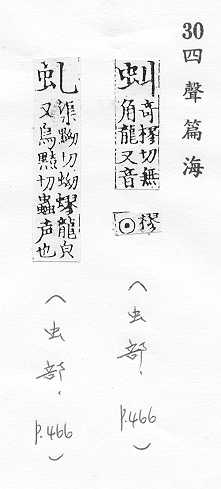 30四聲篇海
虯 奇樛切無角龍又音樛⊙
(虫部. p.466)
虬 渠黝切蚴蟉龍皃又烏黠切蟲声也
(虫部. p.466)